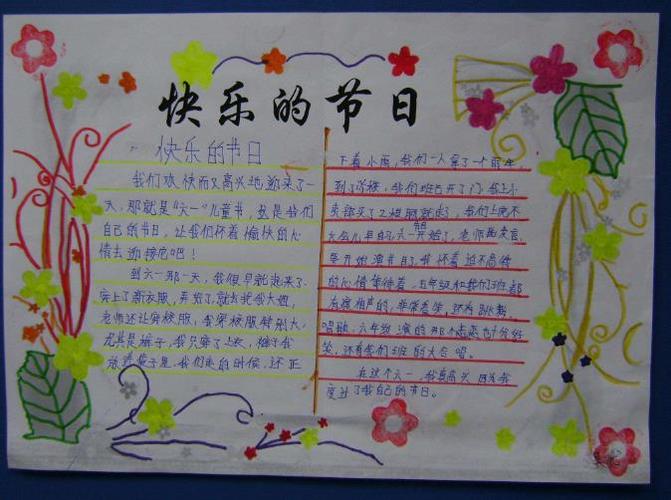 快乐的节日
快乐的节日
我们欢快而又高兴地迎来了一
天，那就是“六一”儿童节，这是我们
自己的节日，让我们怀着愉快的心
情去迎接它吧！
到六一那一天，我很早就起来了.
穿上了新衣服，弄好了就去找我大姐，
老师还让穿校服，
尤其是裤子，我只穿了上衣，裤子我
我们走的时候，还正
下着小雨，我们一人穿了一个雨
到了学校，我们班已开了门，我上小
卖部买了
大会儿
的演节目了 我怀着迫不急待
的心情等待着，五年级和我们班都
有演相声的，非常着笑，还有跳舞，
唱歌，六年级演的那个 也十分好
笑，还有我们班的大合唱。
在这个六一，我真高兴 因为我
度过了我自己的节日。